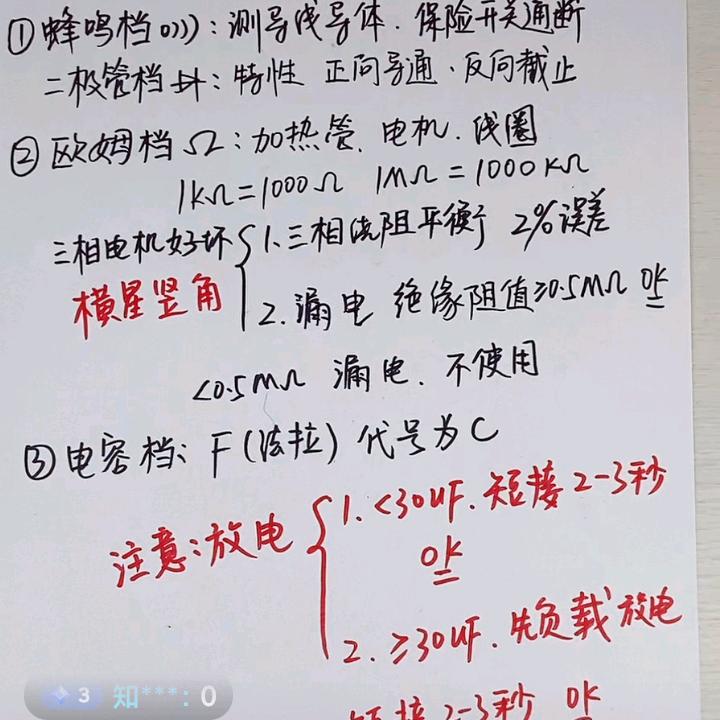 ①蜂鸣档o))):测导线导体.保险开关通断
二极管档:特性 正向导通.反向截止
②欧姆档Ω:加热管.电机.线圈
1KΩ=1000Ω 1MΩ=1000KΩ
三相电机好坏
横星竖角
1.三相绕阻平衡 2%误差
2.漏电 绝缘阻值≥0.5MΩ OK
<0.5MΩ 漏电.不使用
③电容档:F(法拉)代号为C
注意:放电
1.<30UF.短接2-3秒
OK
2.≥30UF.先负载放电
短接2-3秒 OK
3 知***:0